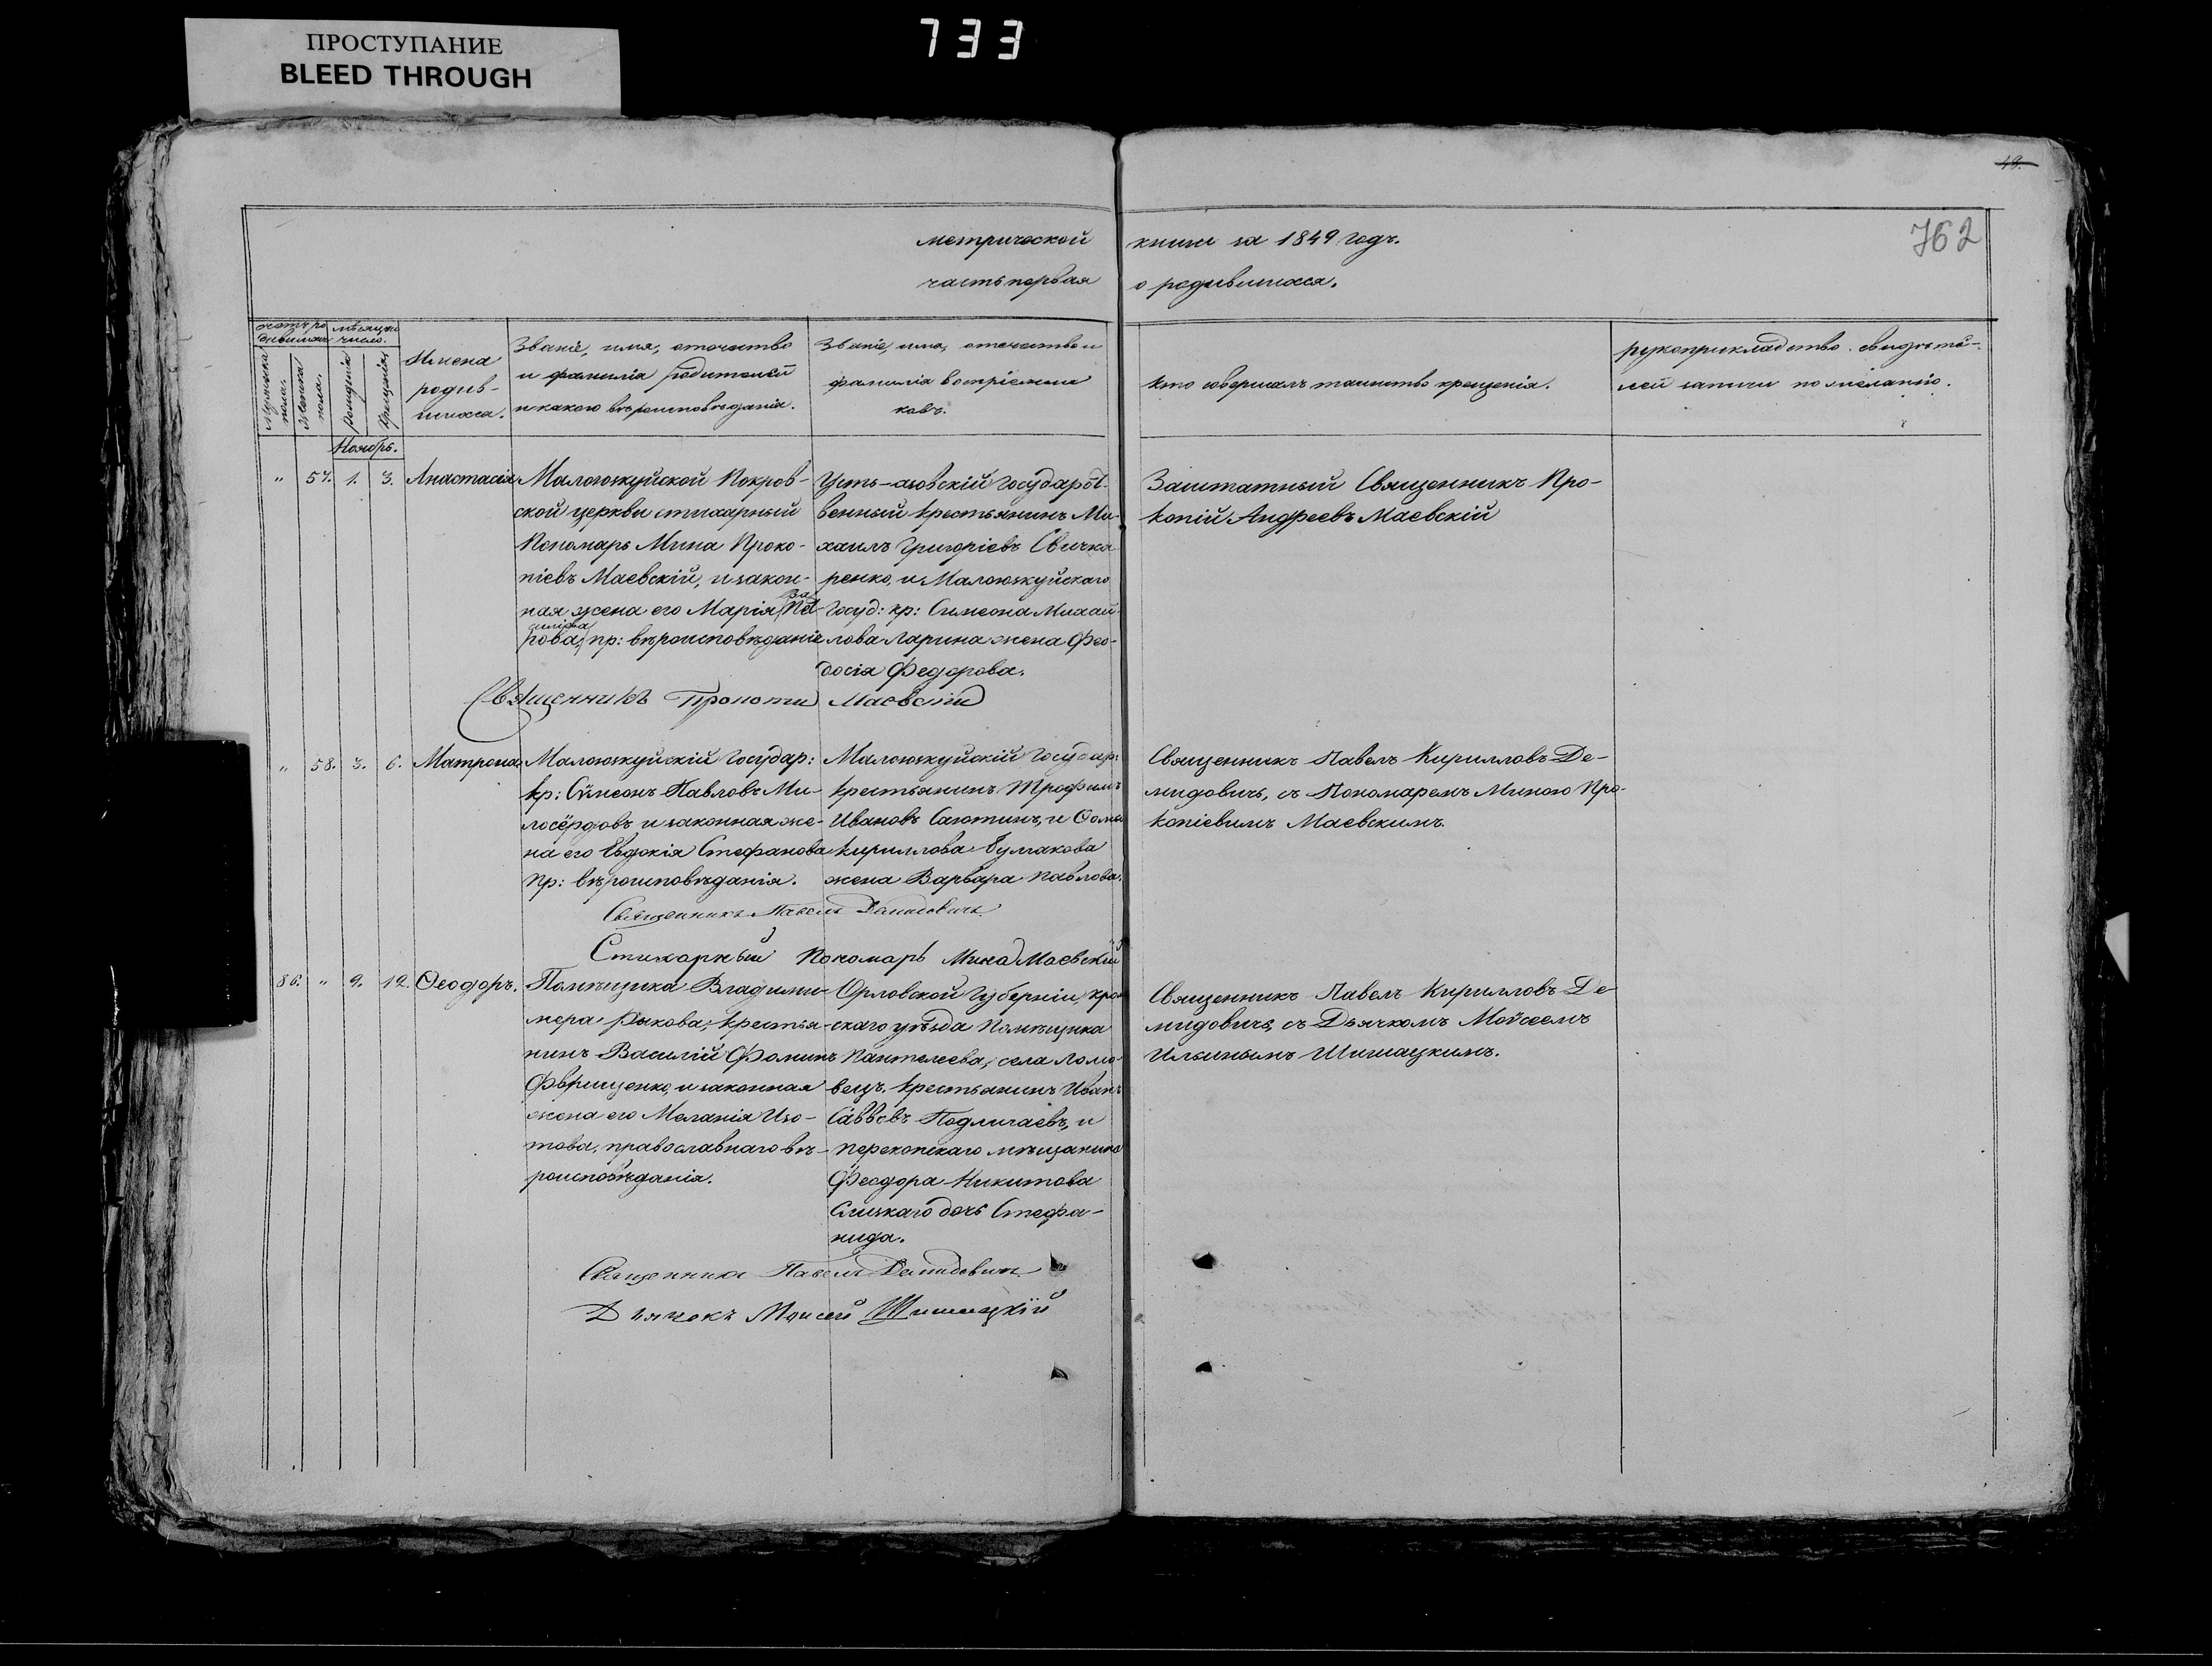 ПРОСТУПАНИЕ
BLEED THROUGH
733
49.
762
метрической книги за 1849 годъ.
часть первая о родившихся.
мѣсяцъ и
число.
Мужеска
пола.
Женска
пола.
рожденія
крещенія
Имена
родив-
шихся.
Званіе, имя, отечество
и фамилія родителей
и какого вѣроисповѣданія.
Званіе, имя, отечество и
фамилія воспріемни
ковъ.
кто совершалъ таинство крещенія.
рукоприкладство свидѣте-
лей записи по желанію.
Ноябрь.
" 57. 1. 3. Анастасія
Малоюзкуйской Покров-
ской церкви стихарный
Пономарь Мина Проко-
піевъ Маевскій, и закон-
ная жена его Марія
пр: вѣроисповѣданіе
венный крестьянинъ Ми-
хаилъ Григоріевъ Свичка
ренко, и Малоюзкуйскаго
госуд: кр: Симеона Михай-
лова Ларина жена Фео-
досія Федорова.
Заштатный Священникъ Про-
копій Андреевъ Маевскій
Священникъ Прокопій Маевскій
" 58. 3. 6. Матрона
Малоюзкуйскій Государ:
кр: Сѵмеонъ Павловъ Ми-
лосёрдовъ и законная же-
на его Евдокія Стефанова
пр: вѣроисповѣданія.
Малоюзкуйскій Государ:
крестьянинъ Трофимъ
Ивановъ Саютинъ, и Ѳома
Кириллова Булгакова
жена Варвара Павлова.
Священникъ Павелъ Кирилловъ Де-
мидовичь, съ Пономаремъ Миною Про-
копіевымъ Маевскимъ.
Священникъ Павелъ Демидовичъ
Стихарный Пономарь Мина Маевскій
86. " 9. 12. Ѳеодоръ.
Помѣщика Владими-
мера Рыкова, крестья-
нинъ Василій Фоминъ
и законная
жена его Меланія Изо-
това, православнаго вѣ-
роисповѣданія.
Орловской Губерніи, кром
скаго уѣзда Помѣщика
Пантелеева, села Ломо-
вецъ, крестьянинъ Иванъ
Саввевъ Подлигаевъ, и
перекопскаго мѣщанина
Феодора Никитова
дочь Стефа-
нида.
Священникъ Павелъ Кирилловъ Де-
мидовичъ, съ Дьячкомъ Моѵсеемъ
Ильинымъ Шишацкимъ.
Священникъ Павелъ Демидовичъ
Дьячокъ Моисей Шишацкій